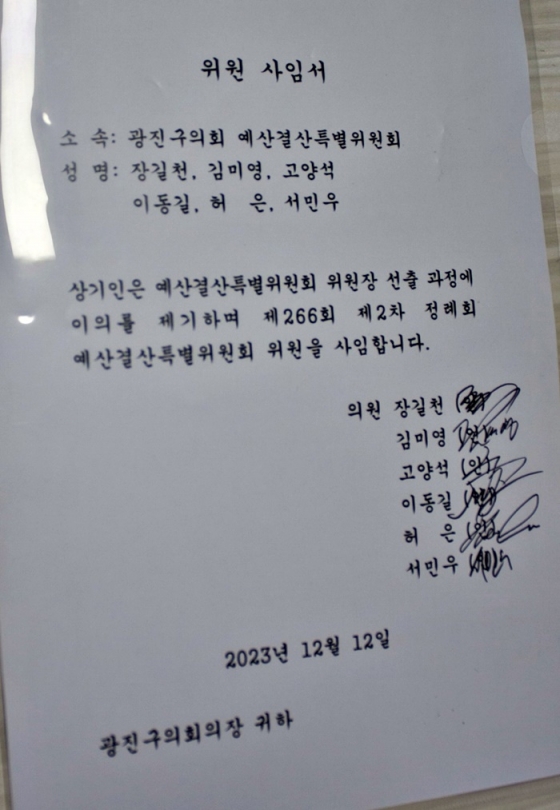 위원 사임서
소 속: 광진구의회 예산결산특별위원회
성 명: 장길천, 김미영, 고양석
이동길, 허 은, 서민우
상기인은 예산결산특별위원회 위원장 선출 과정에
이의를 제기하며 제266회 제2차 정례회
예산결산특별위원회 위원을 사임합니다.
의원 장길천
김미영
고양석 (인)
이동길 (인)
허 은 (인)
서민우
2023년 12월 12일
광진구의회의장 귀하